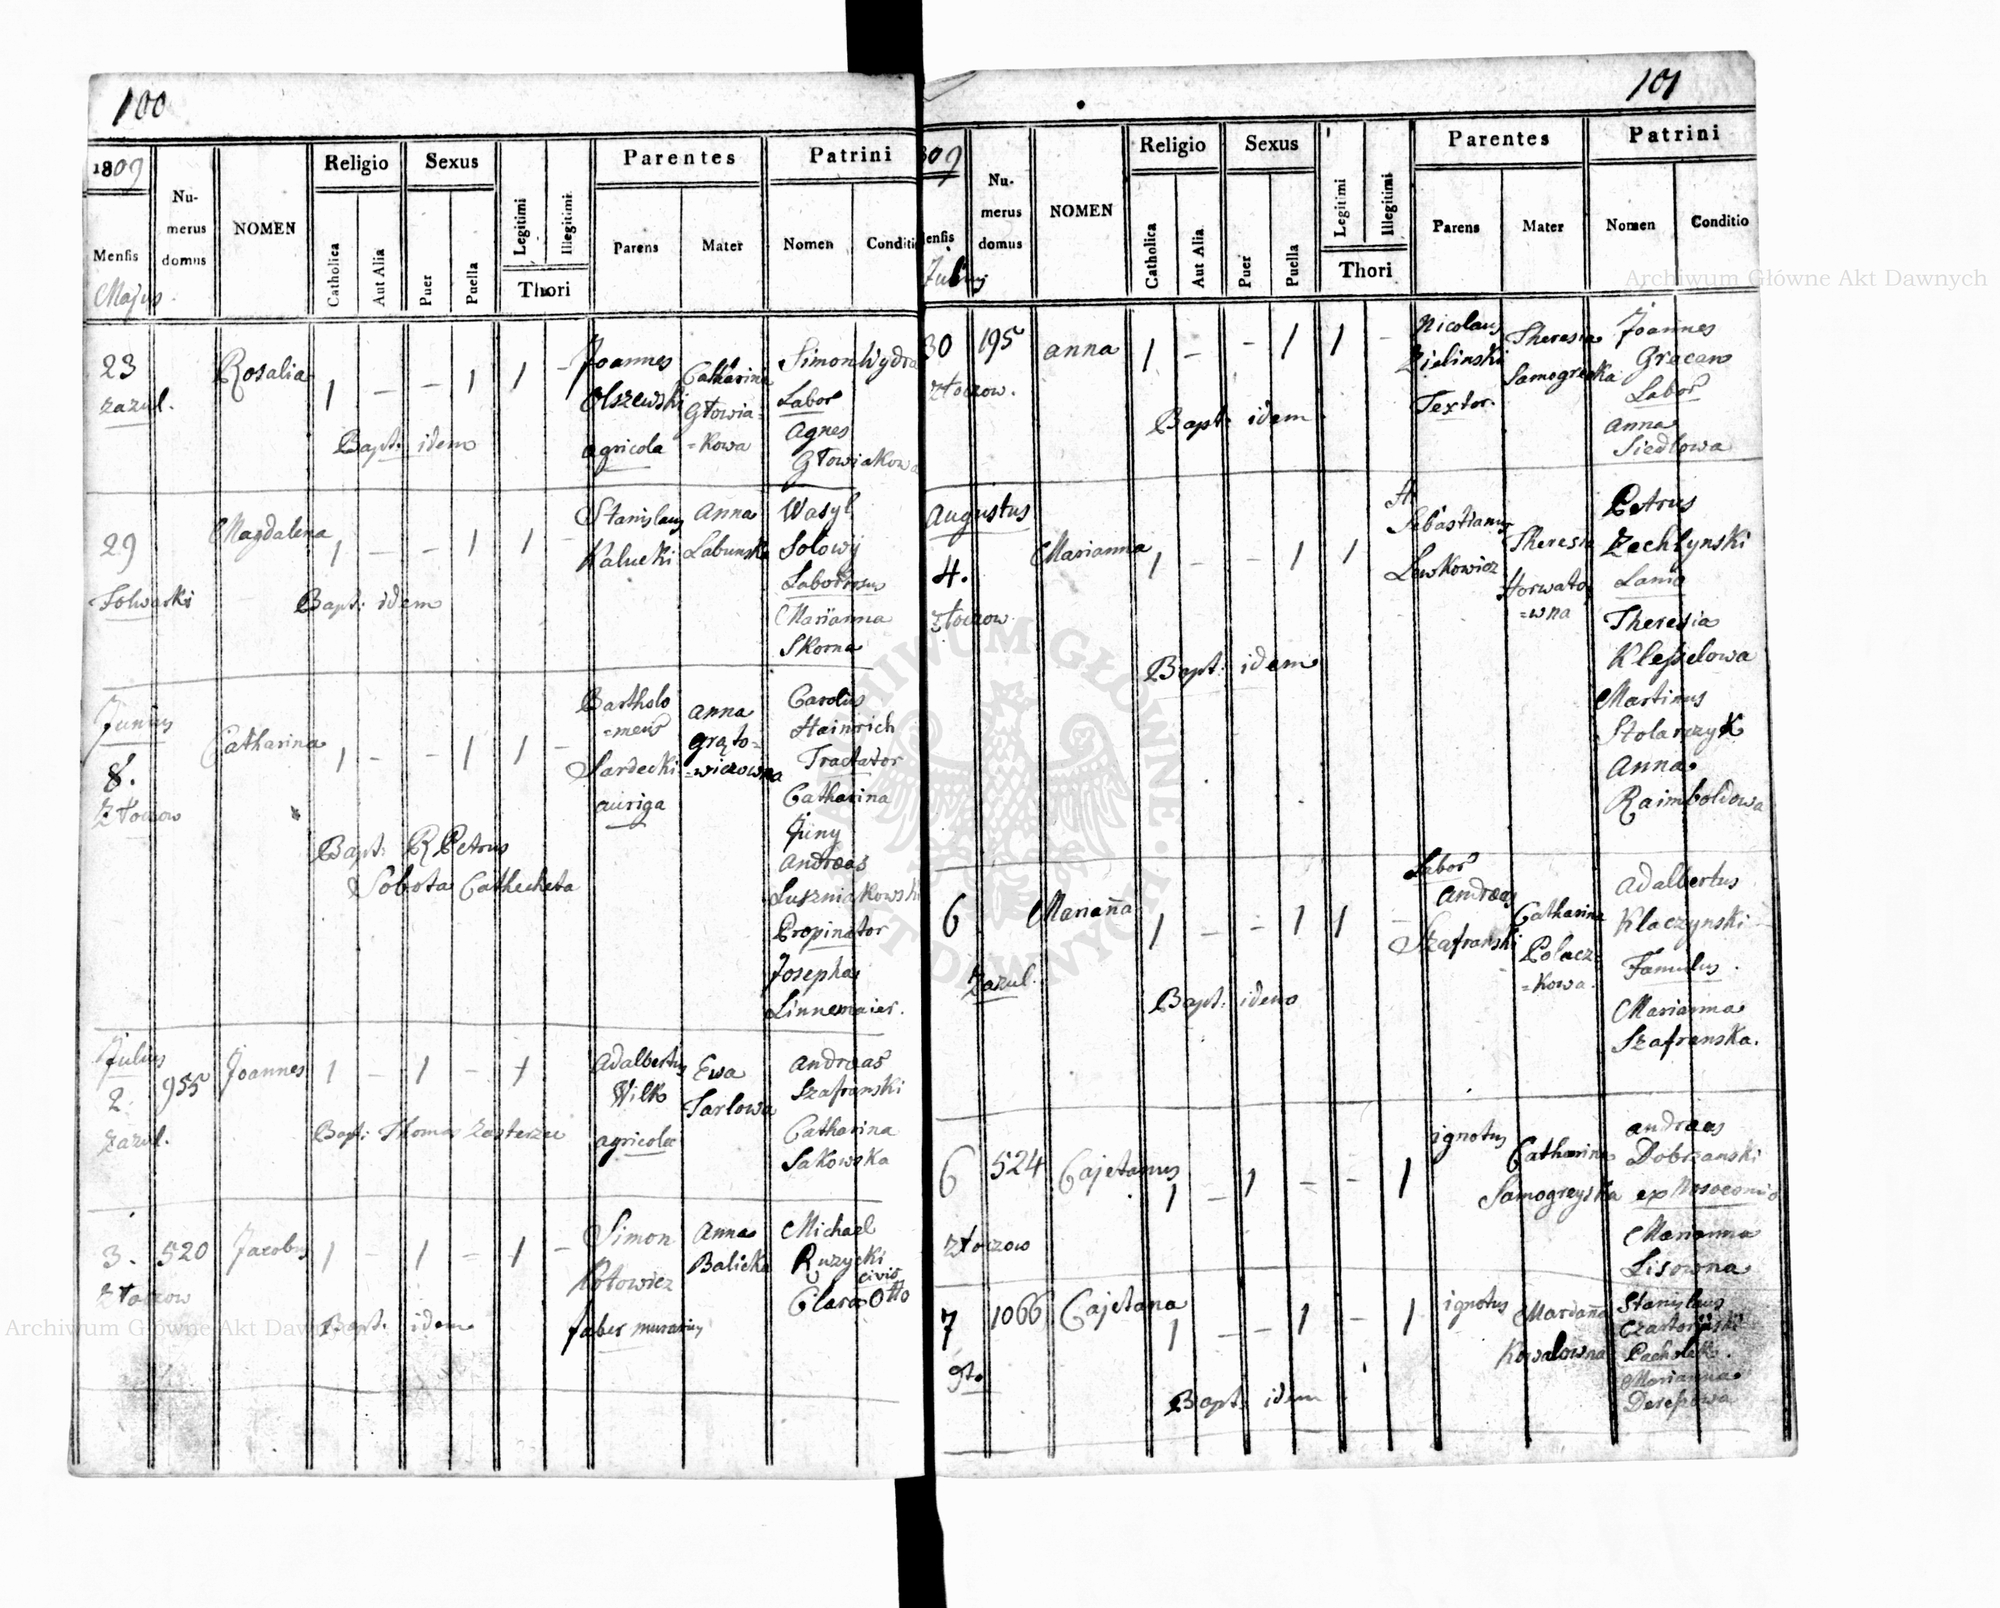 100
1809
Mensis
Majus
Numerus domus
NOMEN
Religio
Catholica
Aut Alia
Sexus
Puer
Puella
Legitimi
Illegitimi
Thori
Parentes
Parens
Mater
Patrini
Nomen
Conditio
23
zazul.
Rosalia
1 — — 1 1 —
Bapt: idem
Joannes
Olszewski
agricola
Catharina
Głowia=
=kowa
Simon Wydra
Labor
Agnes
Głowiakowa
29
Folwarki
Magdalena
1 — — 1 1 —
Bapt: idem
Stanislaus
Kalucki
Anna
Labunska
Wasyl
Solowy
Marianna
Skorna
Junius
8.
Złoczow
Catharina
1 — — 1 1 —
Bapt: R Petrus
Sobota Cathecheta
Bartholo
=meus
Sardecki
auriga
Anna
=wiczowna
Carolus
Hainrich
Tractator
Catharina
Juny
Andreas
Luszniakowski
Propinator
Josepha
Linnemaier.
Julius
2.
zazul.
955
Joannes
1 — 1 — 1
Bapt: Thomas
Adalbertus
Wilk
agricola
Ewa
Tarlowa
Andreas
Szafranski
Catharina
Sakowska
3.
Złoczow
520
Jacobus
1 — 1 — 1 —
Bapt. idem
Simon
Kotowicz
faber murarius
Anna
Balicka
Michael
Ruzycki
civis
Clara Otto
101
809
Mensis
Julius
Numerus domus
NOMEN
Religio
Catholica
Aut Alia
Sexus
Puer
Puella
Legitimi
Illegitimi
Thori
Parentes
Parens
Mater
Patrini
Nomen
Conditio
30
złoczow.
195
Anna
1 — — 1 1 —
Bapt: idem
Nicolaus
Zielinski
Textor.
Theresia
Samogrecka
Joannes
Gracan
Labor
Anna
Siedlowa
Augustus
4.
złoczow
Marianna
1 — — 1 1
Bapt: idem
Sebastianus
Lewkowicz
Theresia
Horwato
=wna
Petrus
Zechlynski
Lanio
Theresia
Klesselowa
Martinus
Stolarczyk
Anna
Raimboldowa
6
Zazul.
Mariaña
1 — — 1 1 —
Bapt: idem
Labor
Andreas
Szafranski
Catharina
Polacz=
=kowa.
Adalbertus
Klaczynski
Famulus.
Marianna
Szafranska.
6
złoczow
524
Cajetanus
1 — 1 — — 1
ignotus
Catharina
Samogreyska
Andreas
Dobrzanski
ex Nosocomio
Marianna
Lisowna
7
1066
Cajetana
1 — — 1 — 1
Bapt: idem
ignotus
Mariaña
Kowalowna
Stanislaus
Czartorinski
Pacholek.
Marianna